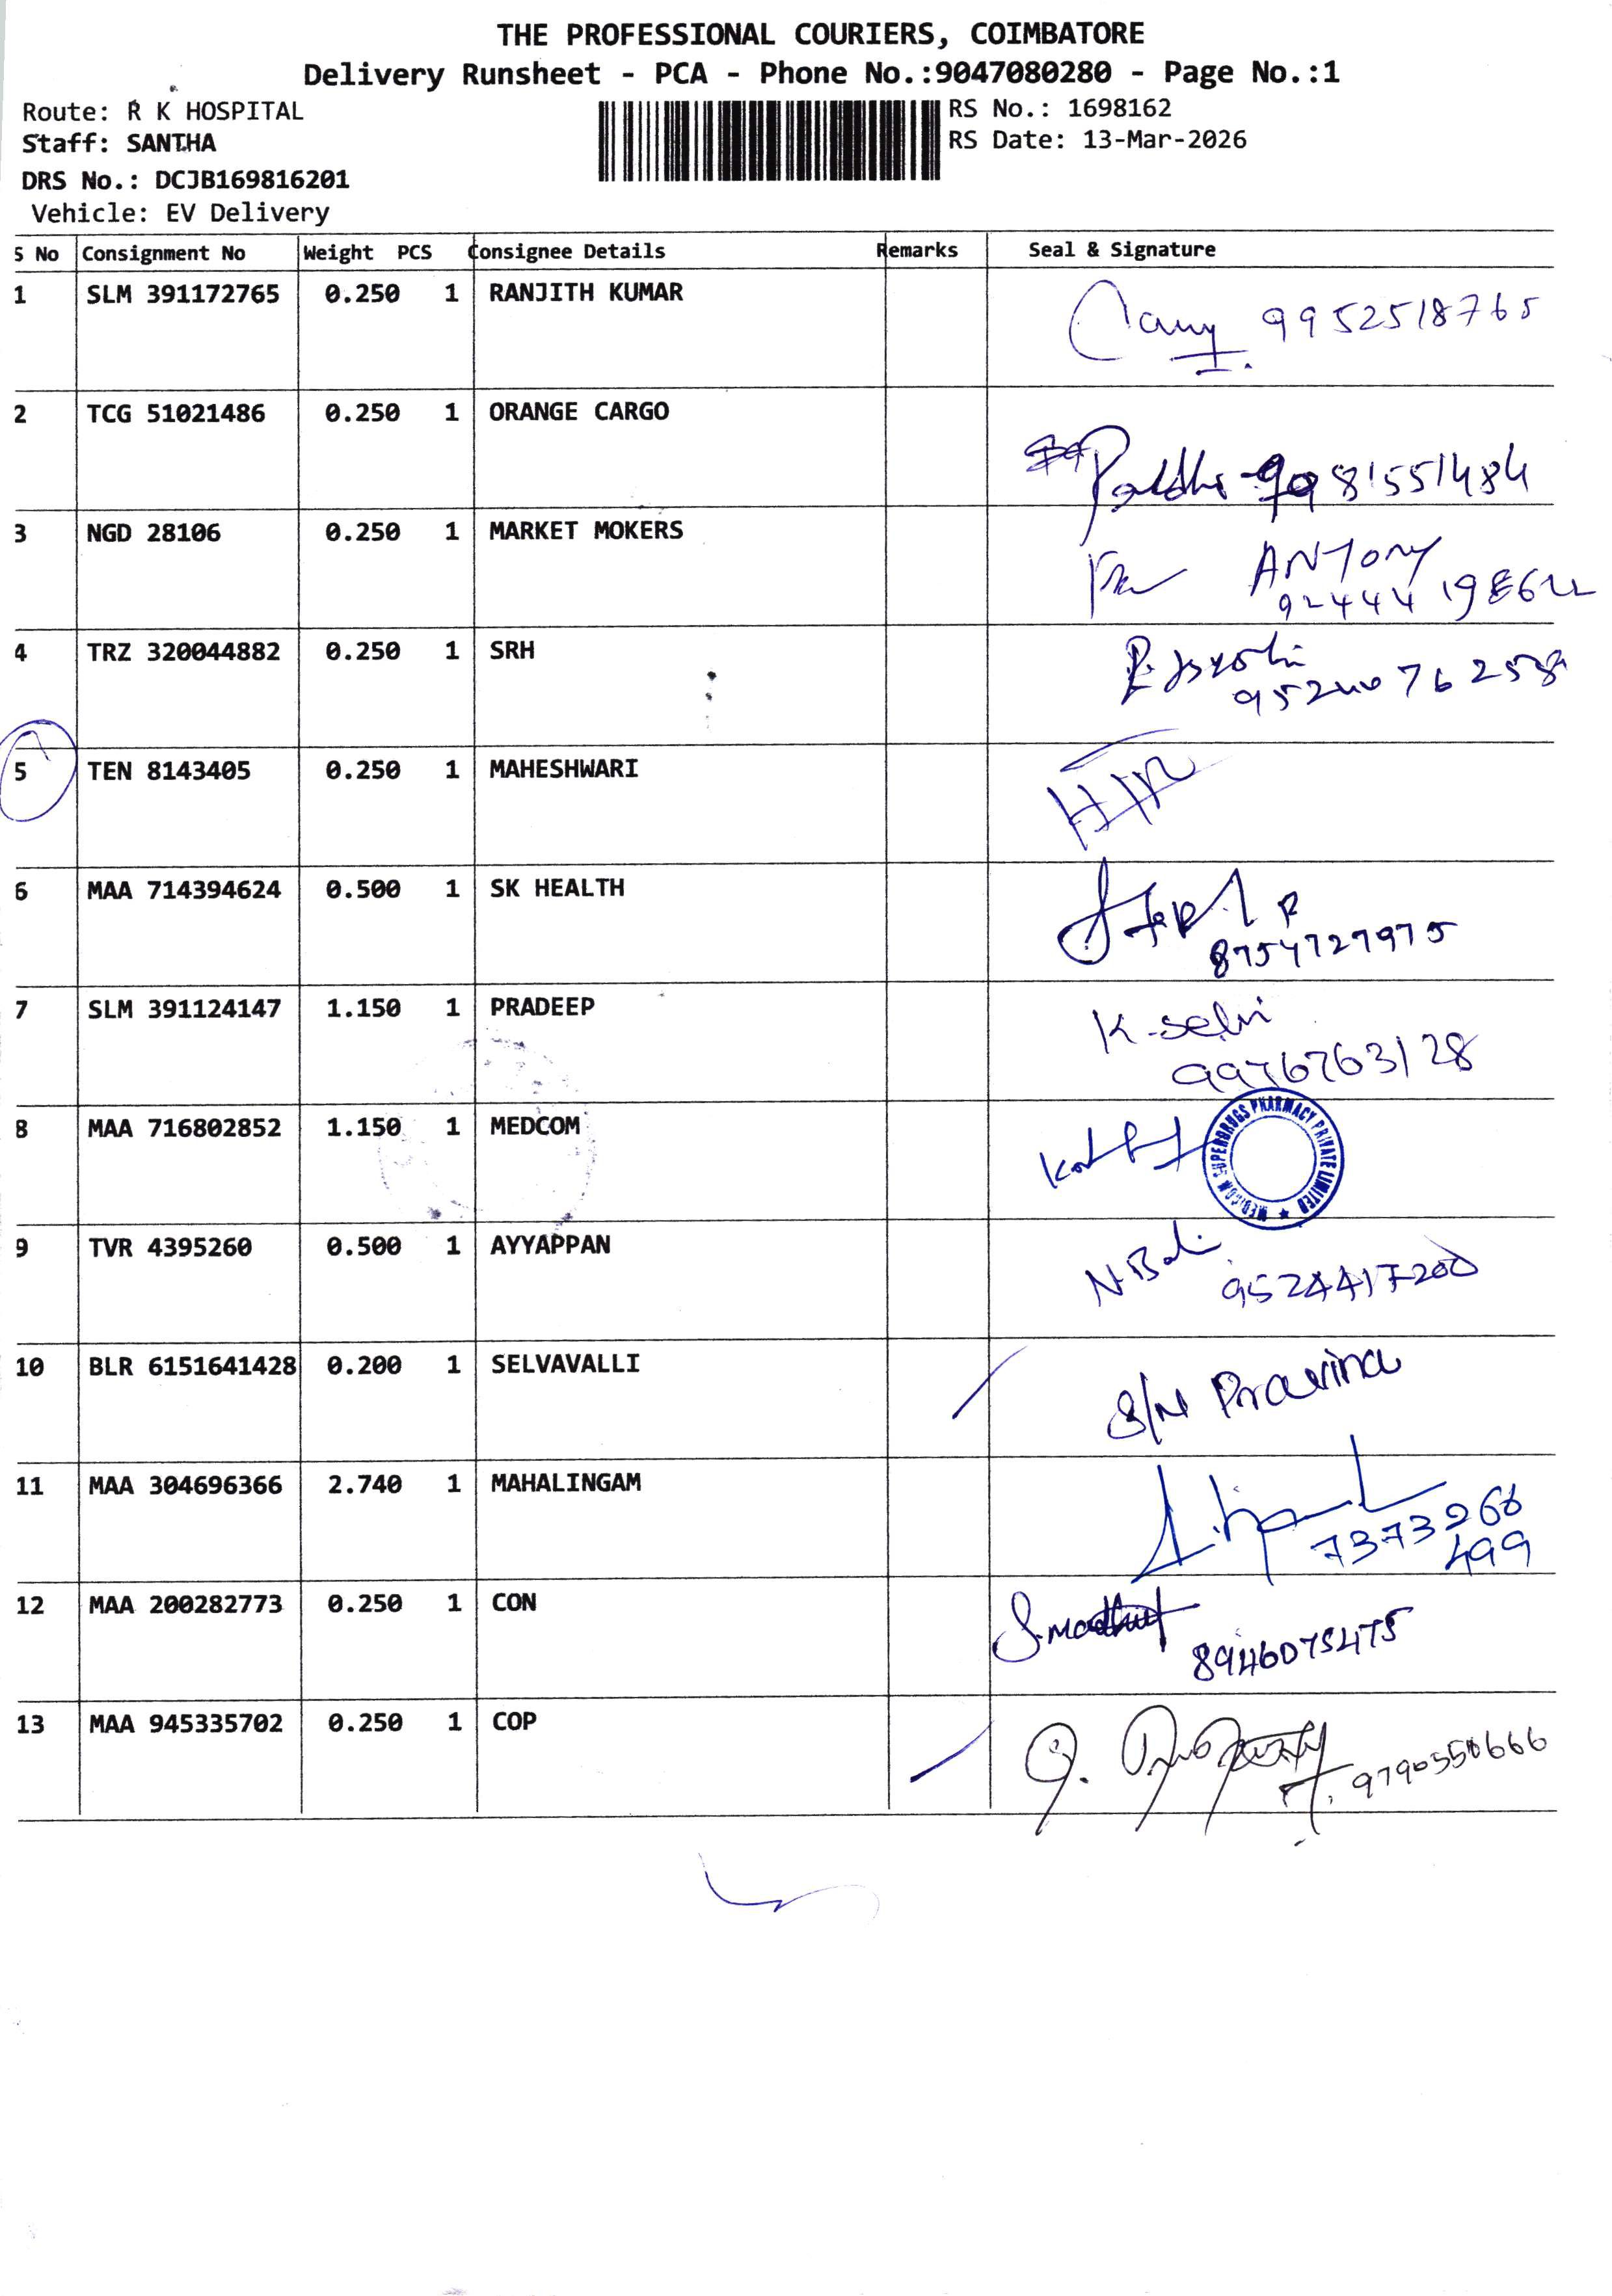 THE PROFESSIONAL COURIERS, COIMBATORE
Delivery Runsheet - PCA - Phone No.:9047080280 - Page No.:1
Route: R K HOSPITAL
RS No.: 1698162
Staff: SANTHA
RS Date: 13-Mar-2026
DRS No.: DCJB169816201
Vehicle: EV Delivery
S No Consignment No Weight PCS Consignee Details Remarks Seal & Signature
1 SLM 391172765 0.250 1 RANJITH KUMAR
9952518765
2 TCG 51021486 0.250 1 ORANGE CARGO
3 NGD 28106 0.250 1 MARKET MOKERS
ANTONY
4 TRZ 320044882 0.250 1 SRH
5 TEN 8143405 0.250 1 MAHESHWARI
6 MAA 714394624 0.500 1 SK HEALTH
8754727975
7 SLM 391124147 1.150 1 PRADEEP
K-selvi
9976763128
8 MAA 716802852 1.150 1 MEDCOM
MEDICOM SUPERDRUGS PHARMACY PRIVATE LIMITED
9 TVR 4395260 0.500 1 AYYAPPAN
9524417200
10 BLR 6151641428 0.200 1 SELVAVALLI
S/N Pravina
11 MAA 304696366 2.740 1 MAHALINGAM
7373266
499
12 MAA 200282773 0.250 1 CON
8946075475
13 MAA 945335702 0.250 1 COP
9790350666